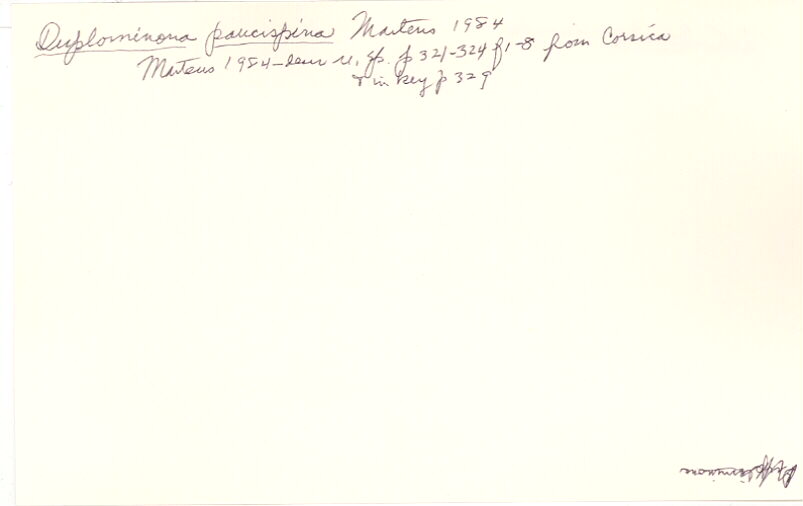 Duplominona paucispina Martens 1984
Martens 1984 – n. sp. p 321-324 f 1-8 from Corsica
+ in key p 329